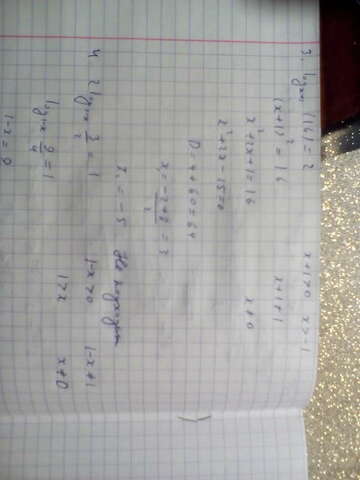 3. log x+1 (16) = 2   x+1>0   x>-1
(x+1)² = 16   x+1≠1
x²+2x+1=16   x≠0
x²+2x-15=0
D=4+60=64
x₁ = (-2+8)/2 = 3
x₂ = ... = -5 - не
4 2log 1-x 3/2 = 1   1-x>0   1-x≠1
log 1-x 9/4 = 1   1>x   x≠0
1-x = 9